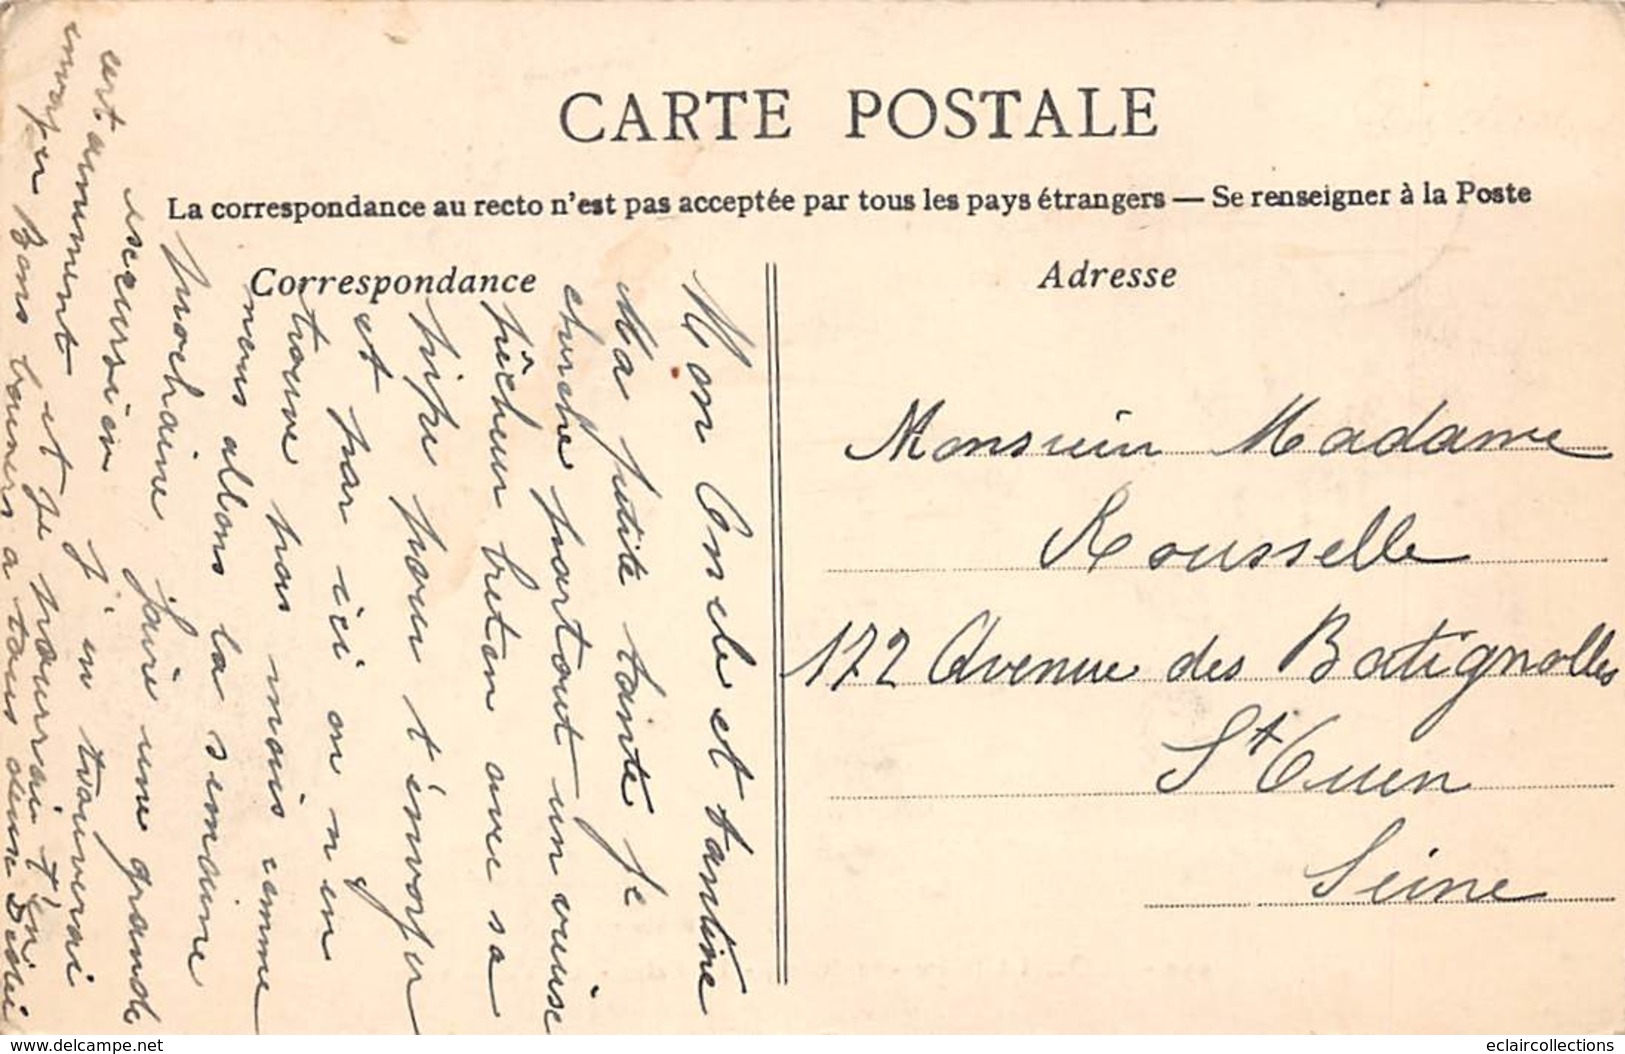 CARTE POSTALE
La correspondance au recto n'est pas acceptée par tous les pays étrangers — Se renseigner à la Poste
Correspondance
Adresse
Mon Oncle et tantine
Ma petite tante je
cherche partout un vieuse
pêcheur breton avec sa
pipe pour t'envoyer
et par ici on n'en
trouve pas mais comme
nous allons la semaine
prochaine faire une grande
escursion
certainement j'en trouverai
et je pourrai t'en
envoyer
Bons baisers a tous deux Dédé
Monsieur Madame
Rousselle
172 Avenue des Batignolles
St Ouen
Seine
www.delcampe.net
eclaircollections